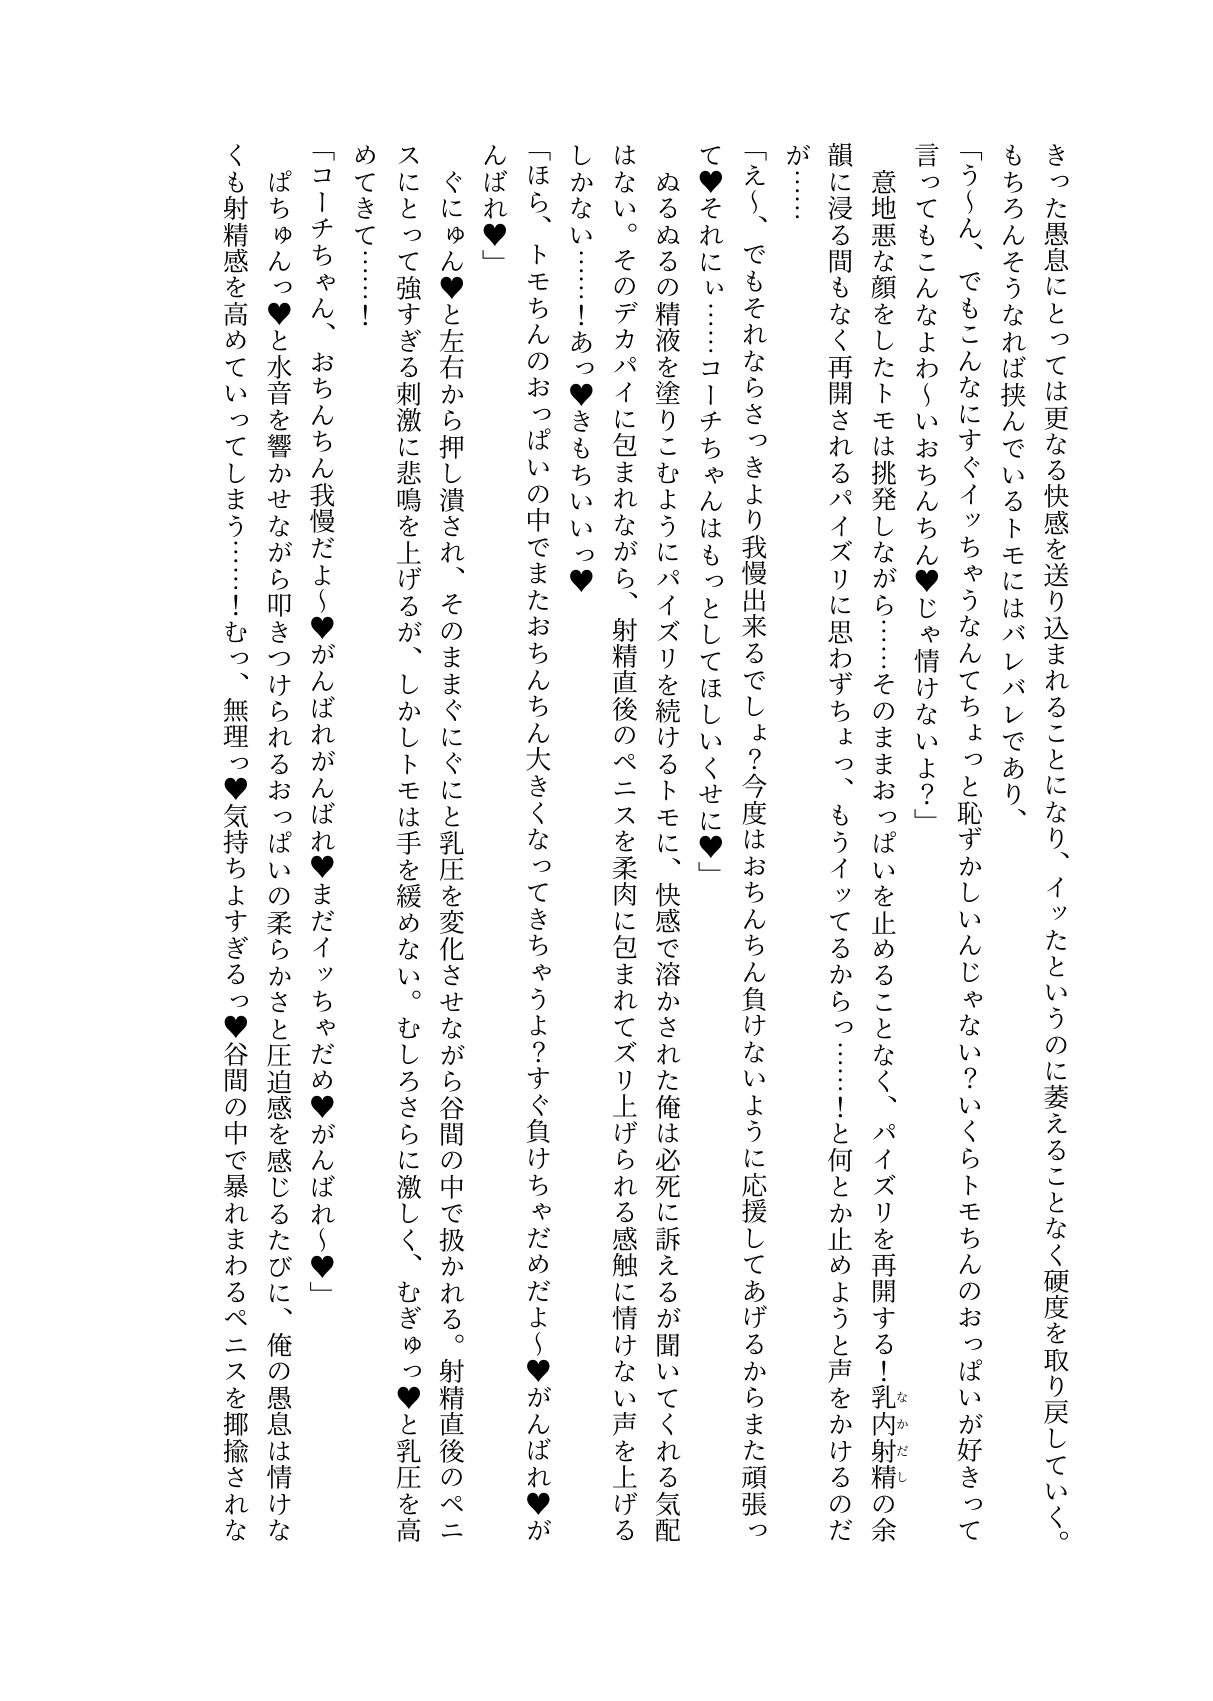 きった愚息にとっては更なる快感を送り込まれることになり、イッたというのに萎えることなく硬度を取り戻していく。
もちろんそうなれば挟んでいるトモにはバレバレであり、
「う～ん、でもこんなにすぐイッちゃうなんてちょっと恥ずかしいんじゃない？いくらトモちんのおっぱいが好きって
言ってもこんなよわ～いおちんちん♥じゃ情けないよ？」
　意地悪な顔をしたトモは挑発しながら……そのままおっぱいを止めることなく、パイズリを再開する！乳内射精なかだしの余
韻に浸る間もなく再開されるパイズリに思わずちょっ、もうイッてるからっ……！と何とか止めようと声をかけるのだ
が……
「え～、でもそれならさっきより我慢出来るでしょ？今度はおちんちん負けないように応援してあげるからまた頑張っ
て♥それにぃ……コーチちゃんはもっとしてほしいくせに♥」
　ぬるぬるの精液を塗りこむようにパイズリを続けるトモに、快感で溶かされた俺は必死に訴えるが聞いてくれる気配
はない。そのデカパイに包まれながら、射精直後のペニスを柔肉に包まれてズリ上げられる感触に情けない声を上げる
しかない……！あっ♥きもちいいっ♥
「ほら、トモちんのおっぱいの中でまたおちんちん大きくなってきちゃうよ？すぐ負けちゃだめだよ～♥がんばれ♥が
んばれ♥」
　ぐにゅん♥と左右から押し潰され、そのままぐにぐにと乳圧を変化させながら谷間の中で扱かれる。射精直後のペニ
スにとって強すぎる刺激に悲鳴を上げるが、しかしトモは手を緩めない。むしろさらに激しく、むぎゅっ♥と乳圧を高
めてきて……！
「コーチちゃん、おちんちん我慢だよ～♥がんばれがんばれ♥まだイッちゃだめ♥がんばれ～♥」
　ぱちゅんっ♥と水音を響かせながら叩きつけられるおっぱいの柔らかさと圧迫感を感じるたびに、俺の愚息は情けな
くも射精感を高めていってしまう……！むっ、無理っ♥気持ちよすぎるっ♥谷間の中で暴れまわるペニスを揶揄されな